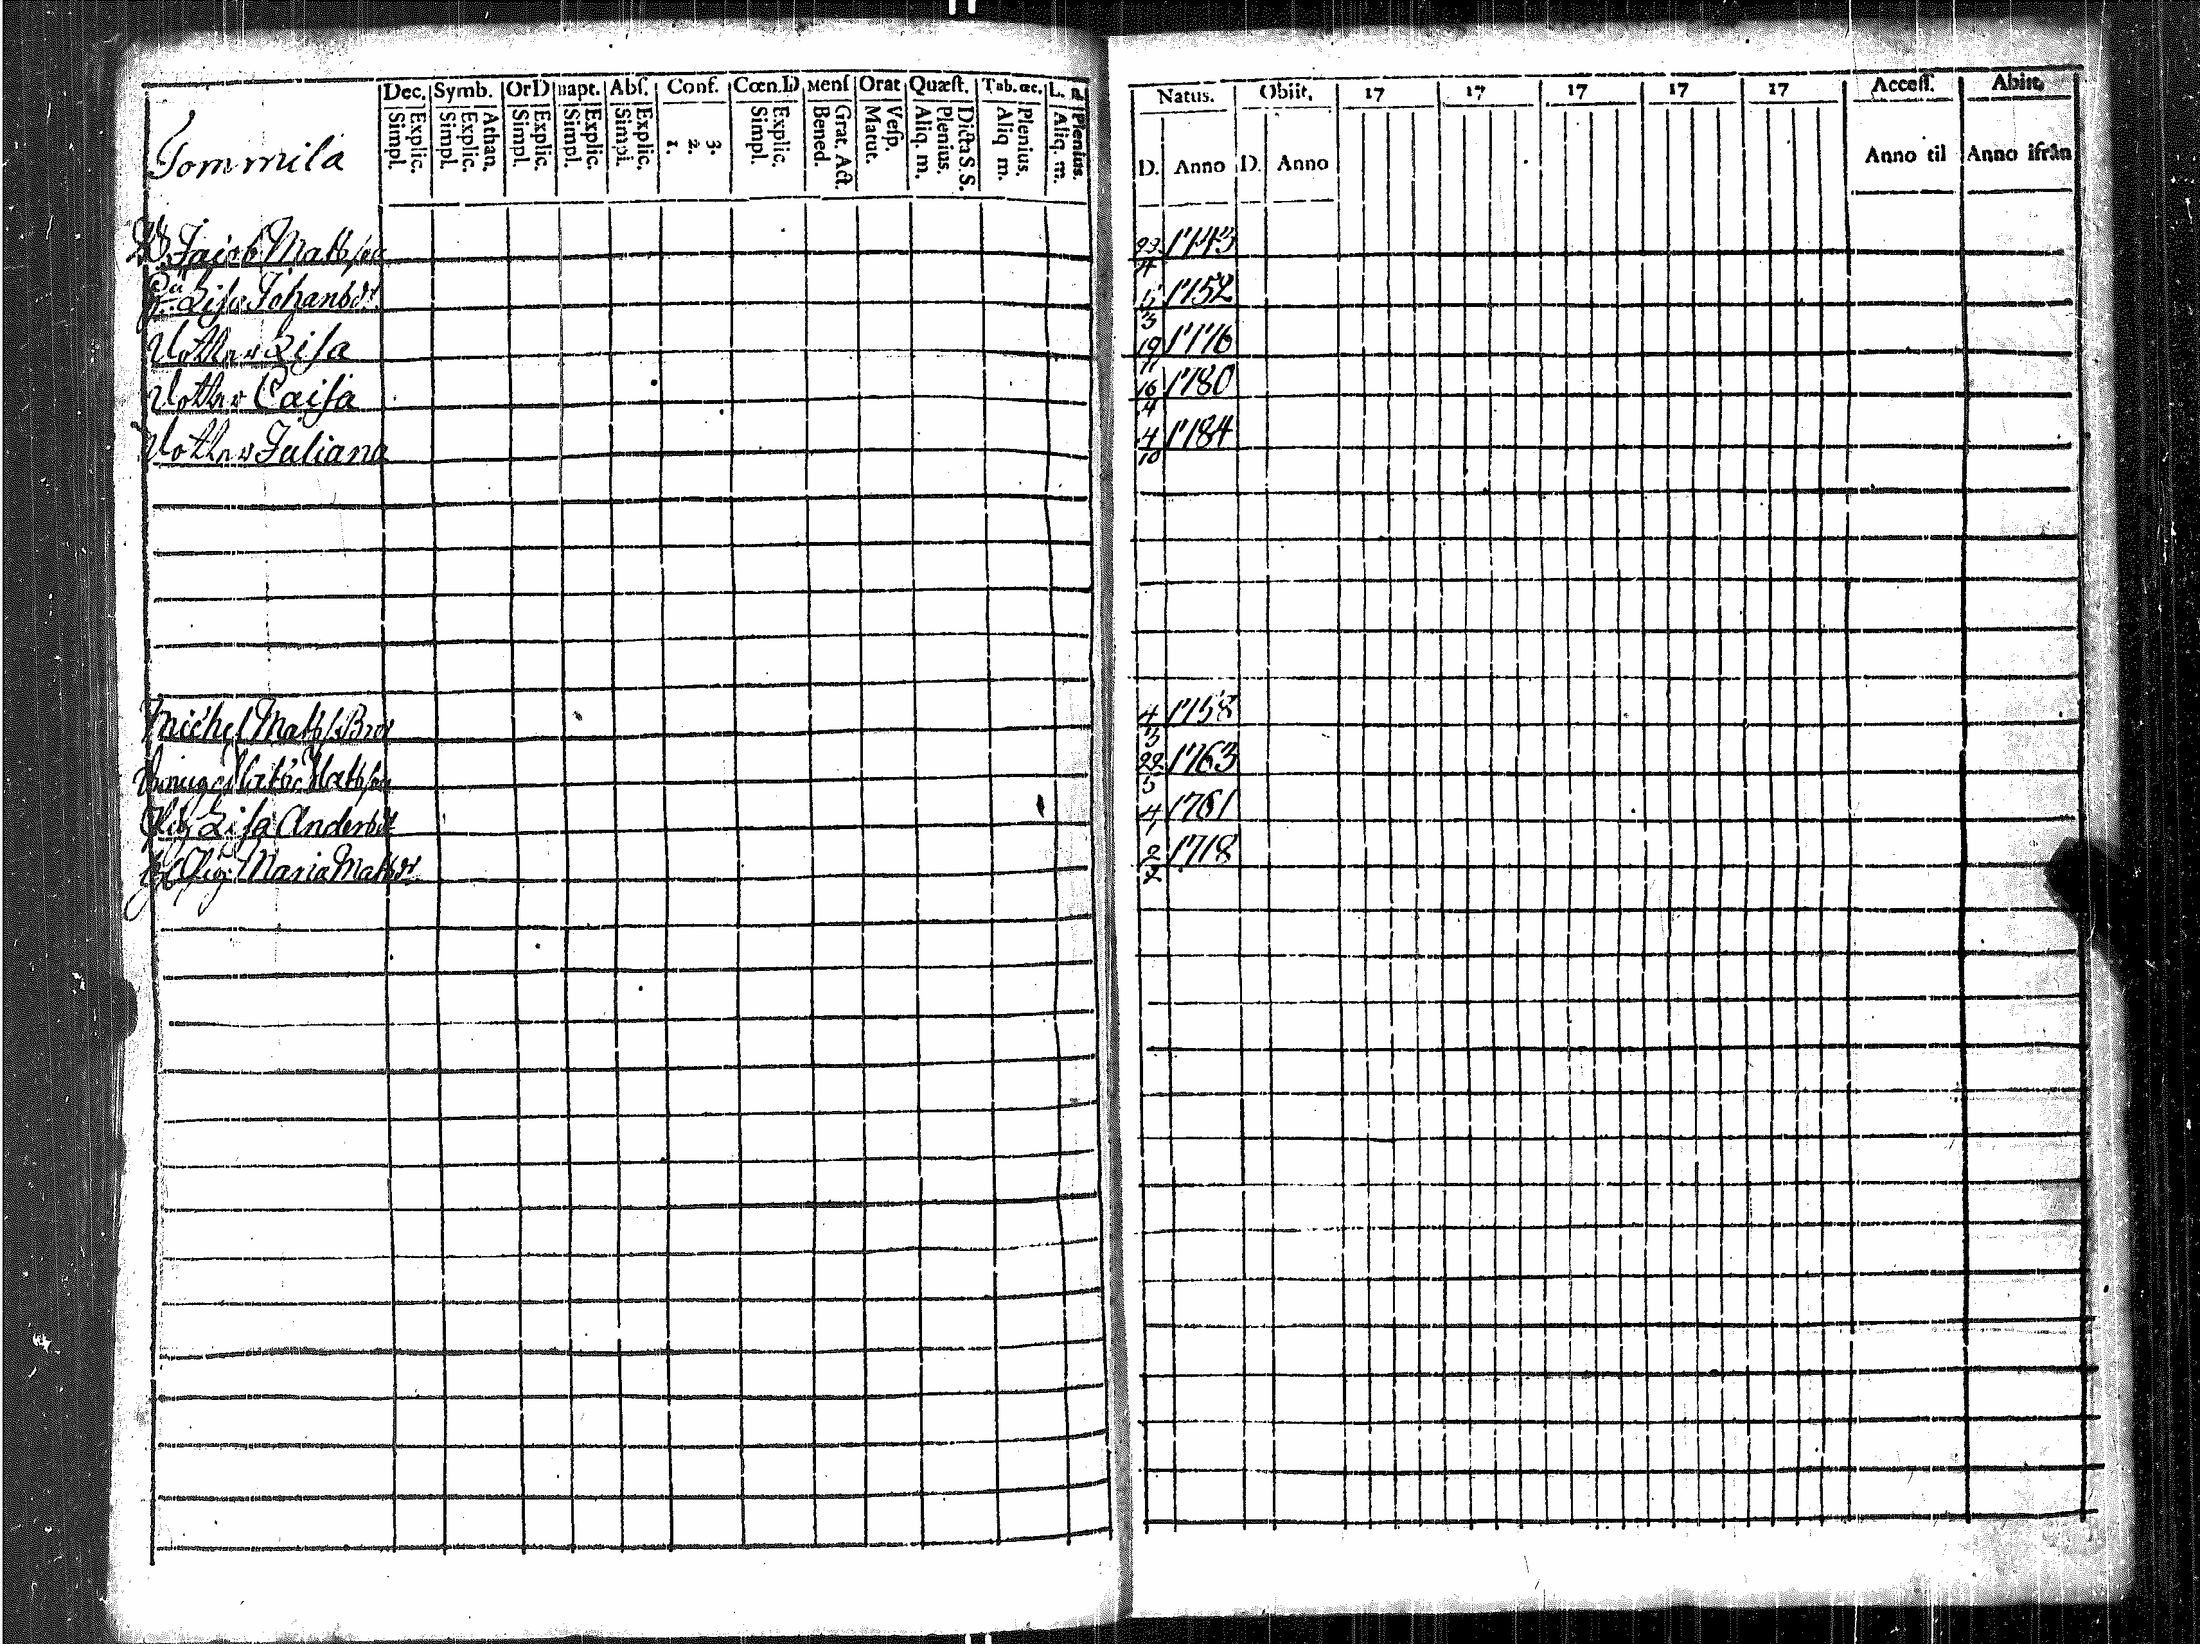 Dec. Symb. OrD Bapt. Abſ. Conf. Cœn.D Menſ Orat Quæſt. Tab.œc. L.
Simpl. Explic. Simpl. Explic. Athan. Simpl. Explic. Simpl. Explic. Simpl. Explic. 1. 2. 3. Simpl. Explic. Bened. Grat. Act. Matut. Veſp. Aliq. m. Plenius. Dicta S. S. Aliq m. Plenius. Aliq. m. Plenius.
Natus. Obiit. 17 17 17 17 17 Acceſſ. Abiit.
D. Anno D. Anno Anno til Anno ifrån
Tommila
Jacob Mattsson 23/4 1743
Lisa Johansdr 1752
Dotter Lisa 19/11 1776
Dotter Caisa 16/4 1780
Dotter Juliana 4/10 1784
Michel Matts. Bror 4/3 1758
Matts Mattsson 22/5 1763
Hu Lisa Andersdr 4/1 1761
Maria Mattsdr 2/2 1718